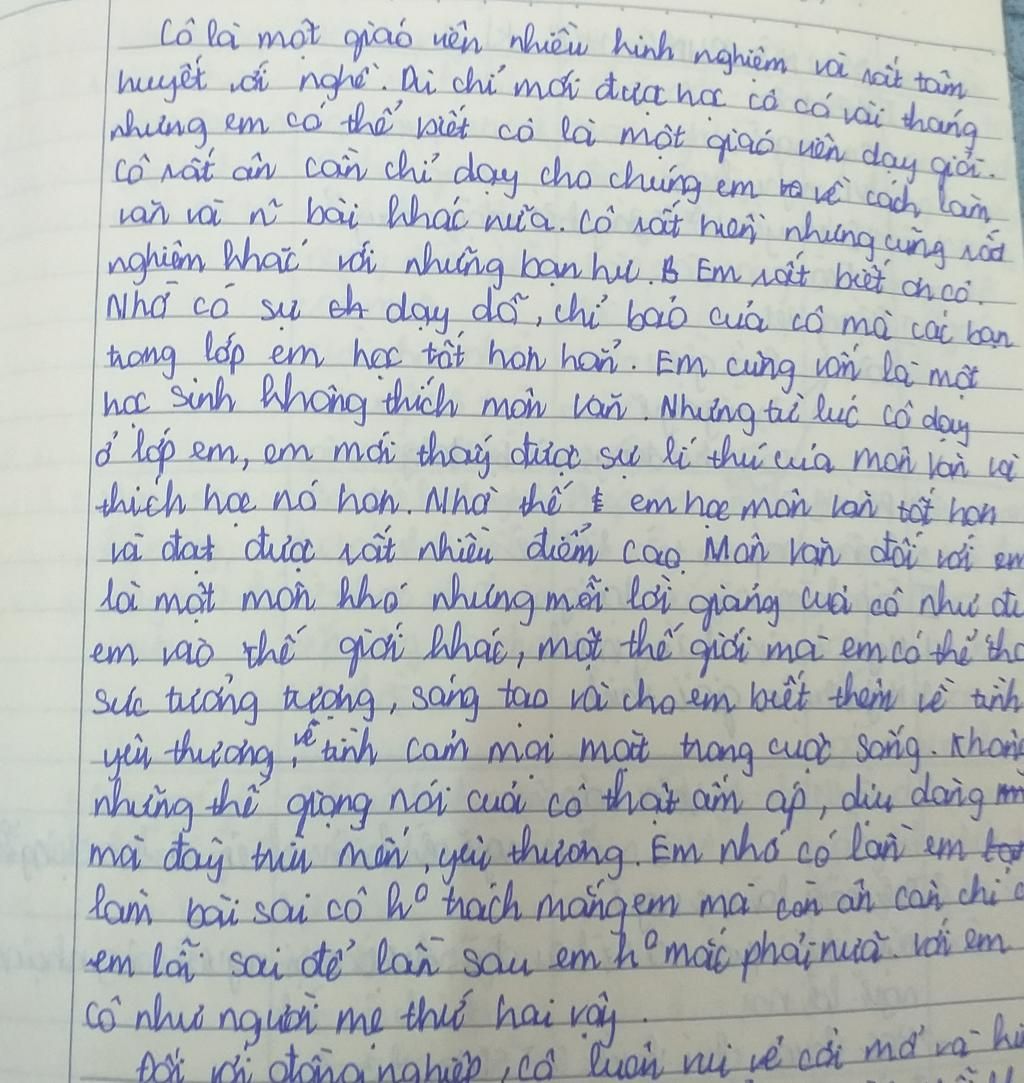 Cô là một giáo viên nhiều kinh nghiệm và rất tâm
huyết với nghề. Dù chỉ mới được học cô có vài tháng
nhưng em có thể biết cô là một giáo viên dạy giỏi.
Cô rất ân cần chỉ dạy cho chúng em về cách làm
văn và n~ bài khác nữa. Cô rất hiền nhưng cũng rất
nghiêm khắc với những bạn hư. Em rất biết ơn cô.
Nhờ có sự dạy dỗ, chỉ bảo của cô mà các bạn
trong lớp em học tốt hơn hẳn. Em cũng vốn là một
học sinh không thích môn văn. Nhưng từ lúc cô dạy
ở lớp em, em mới thấy được sự lí thú của môn văn và
thích học nó hơn. Nhờ thế em học môn văn tốt hơn
và đạt được rất nhiều điểm cao. Môn văn đối với em
là một môn khó nhưng mỗi lời giảng của cô như
em vào thế giới khác, một thế giới mà em có thể
sức tưởng tượng, sáng tạo và cho em biết thêm về tình
yêu thương, về tình cảm mọi mặt trong cuộc sống. Không
những thế giọng nói của cô thật ấm áp, dịu dàng
mà đầy trìu mến, yêu thương. Em nhớ có lần em
làm bài sai cô ko trách mắng em mà còn ân cần chỉ
em lỗi sai để lần sau em ko mắc phải nữa. Với em
cô như người mẹ thứ hai vậy.
Đối với đồng nghiệp, cô luôn vui vẻ cởi mở và